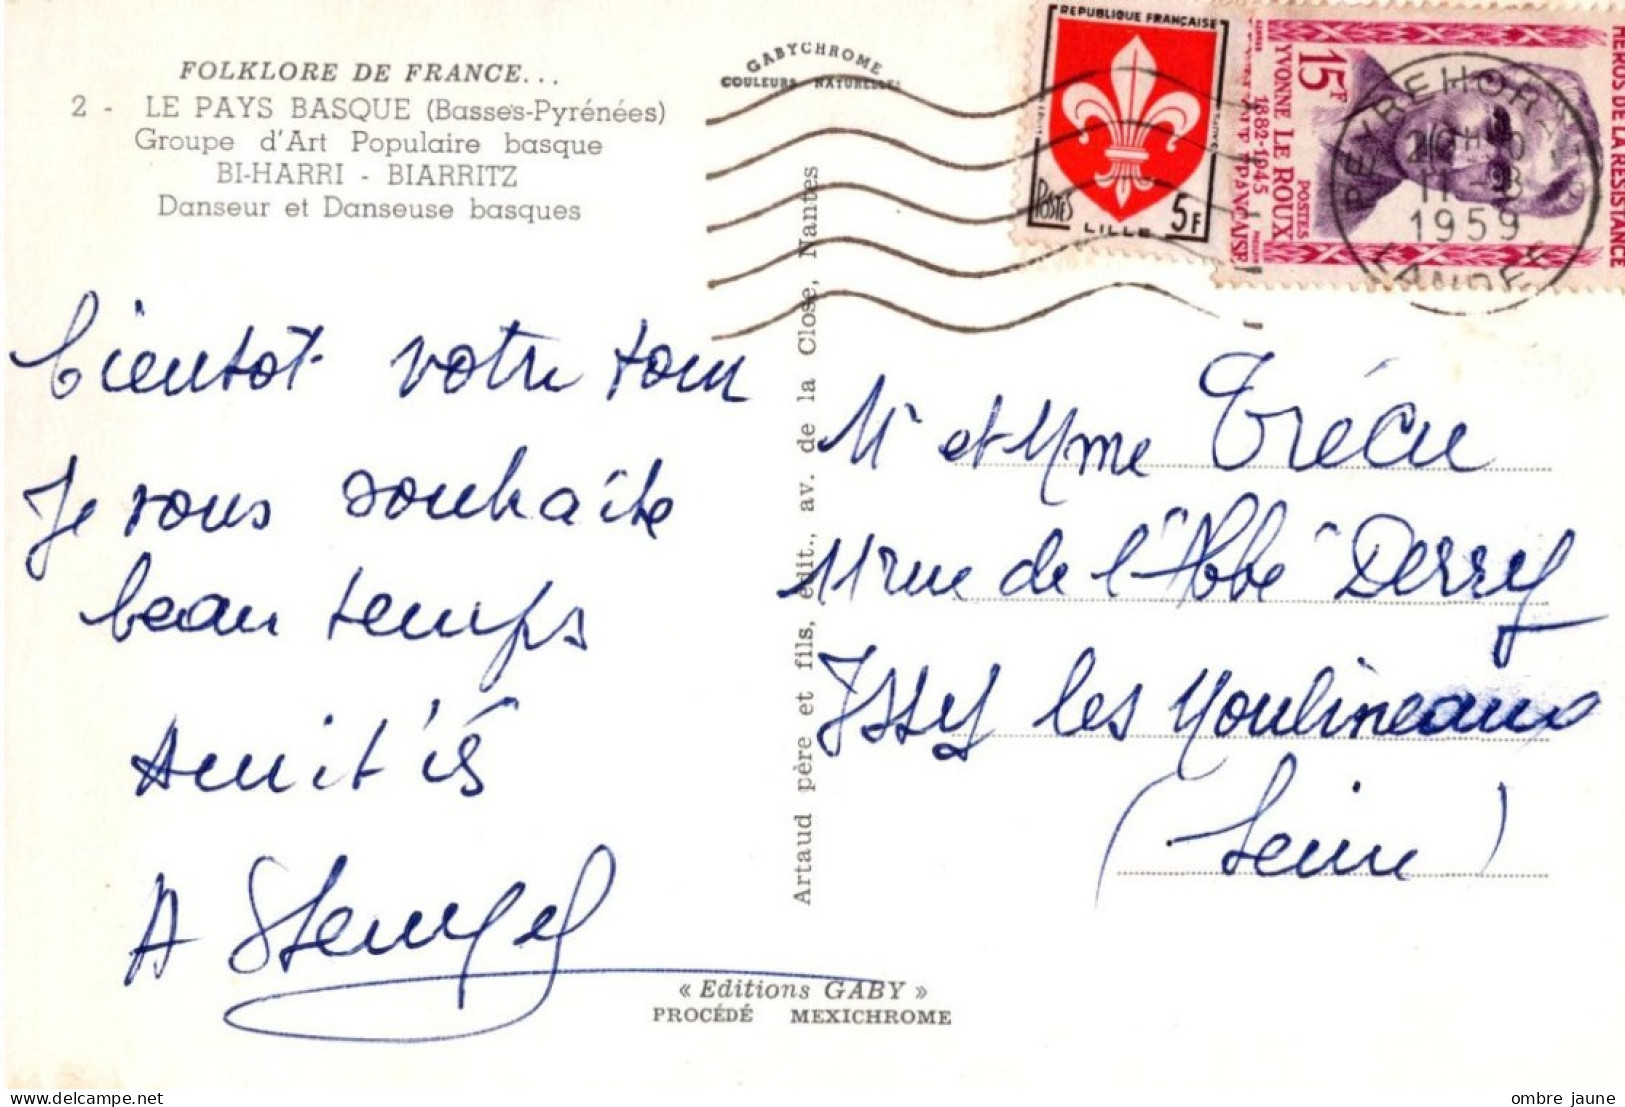 FOLKLORE DE FRANCE...
2 - LE PAYS BASQUE (Basses-Pyrénées)
Groupe d'Art Populaire basque
BI-HARRI - BIARRITZ
Danseur et Danseuse basques
GABYCHROME
COULEURS NATURELLES
REPUBLIQUE FRANÇAISE
POSTES
5F
LILLE
HEROS DE LA RESISTANCE
15F
YVONNE LE ROUX
1882-1945
POSTES
PEYREHOR
11 - 8
1959
LANDES
bientot votre tour
Je vous souhaite
beau temps
Amitiés
A Stengel
Artaud père et fils, édit., av. de la Close, Nantes
Mr et Mme Trécu
11 rue de l'Abbé Derry
Issy les Moulineaux
(Seine)
« Editions GABY »
PROCÉDÉ MEXICHROME
www.delcampe.net
ombre jaune